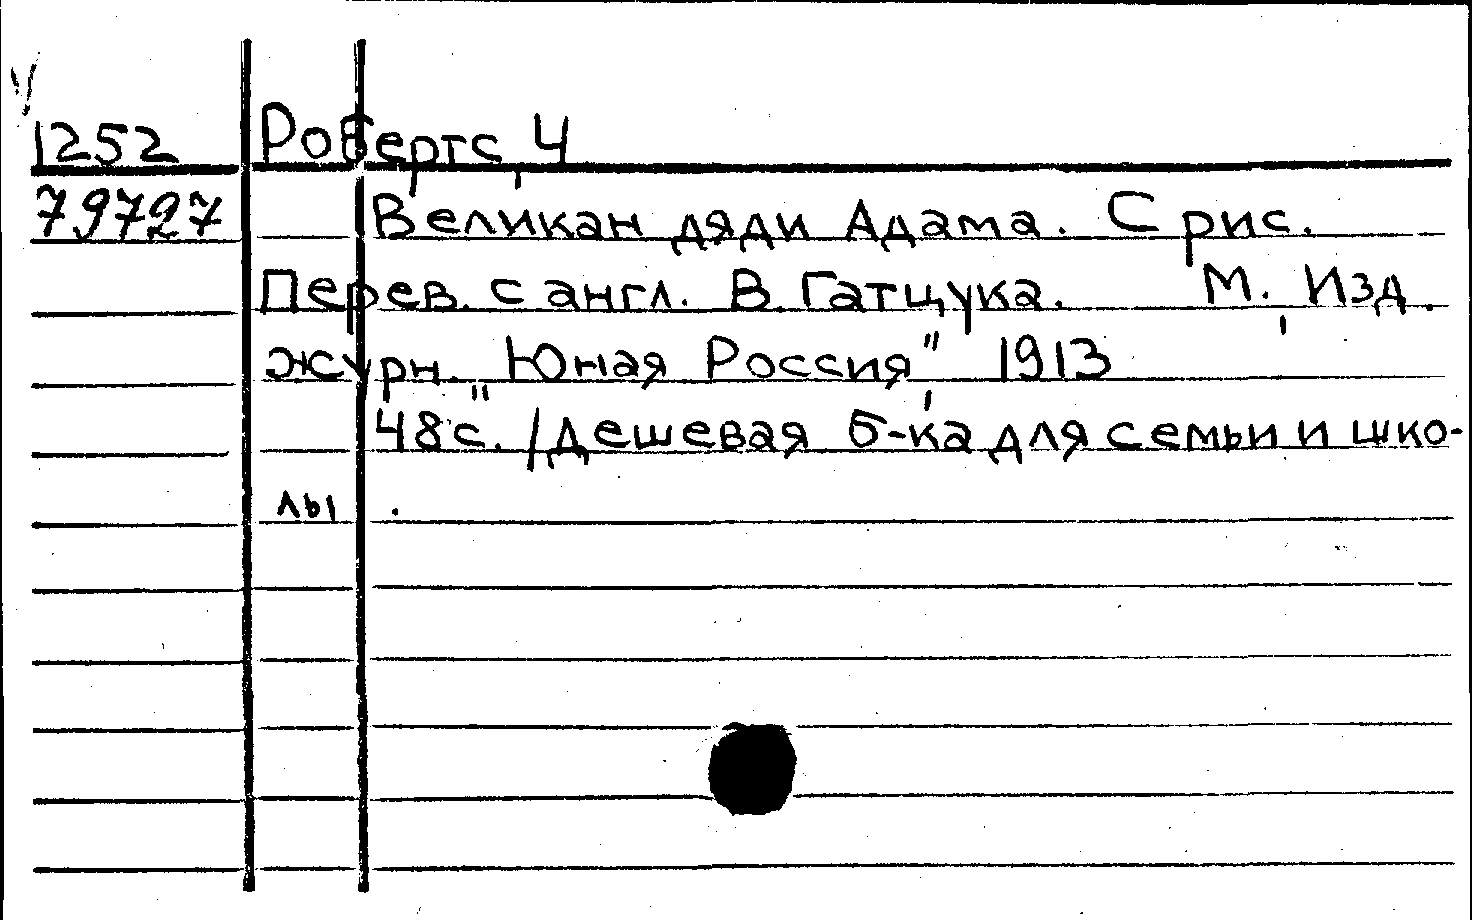 1252 Робертс, Ч
79727 Великан дяди Адама. С рис.
Перев. с англ. В. Гатцука. М., Изд.
журн. „Юная Россия", 1913
48 с. /Дешевая б-ка для семьи и шко-
лы.